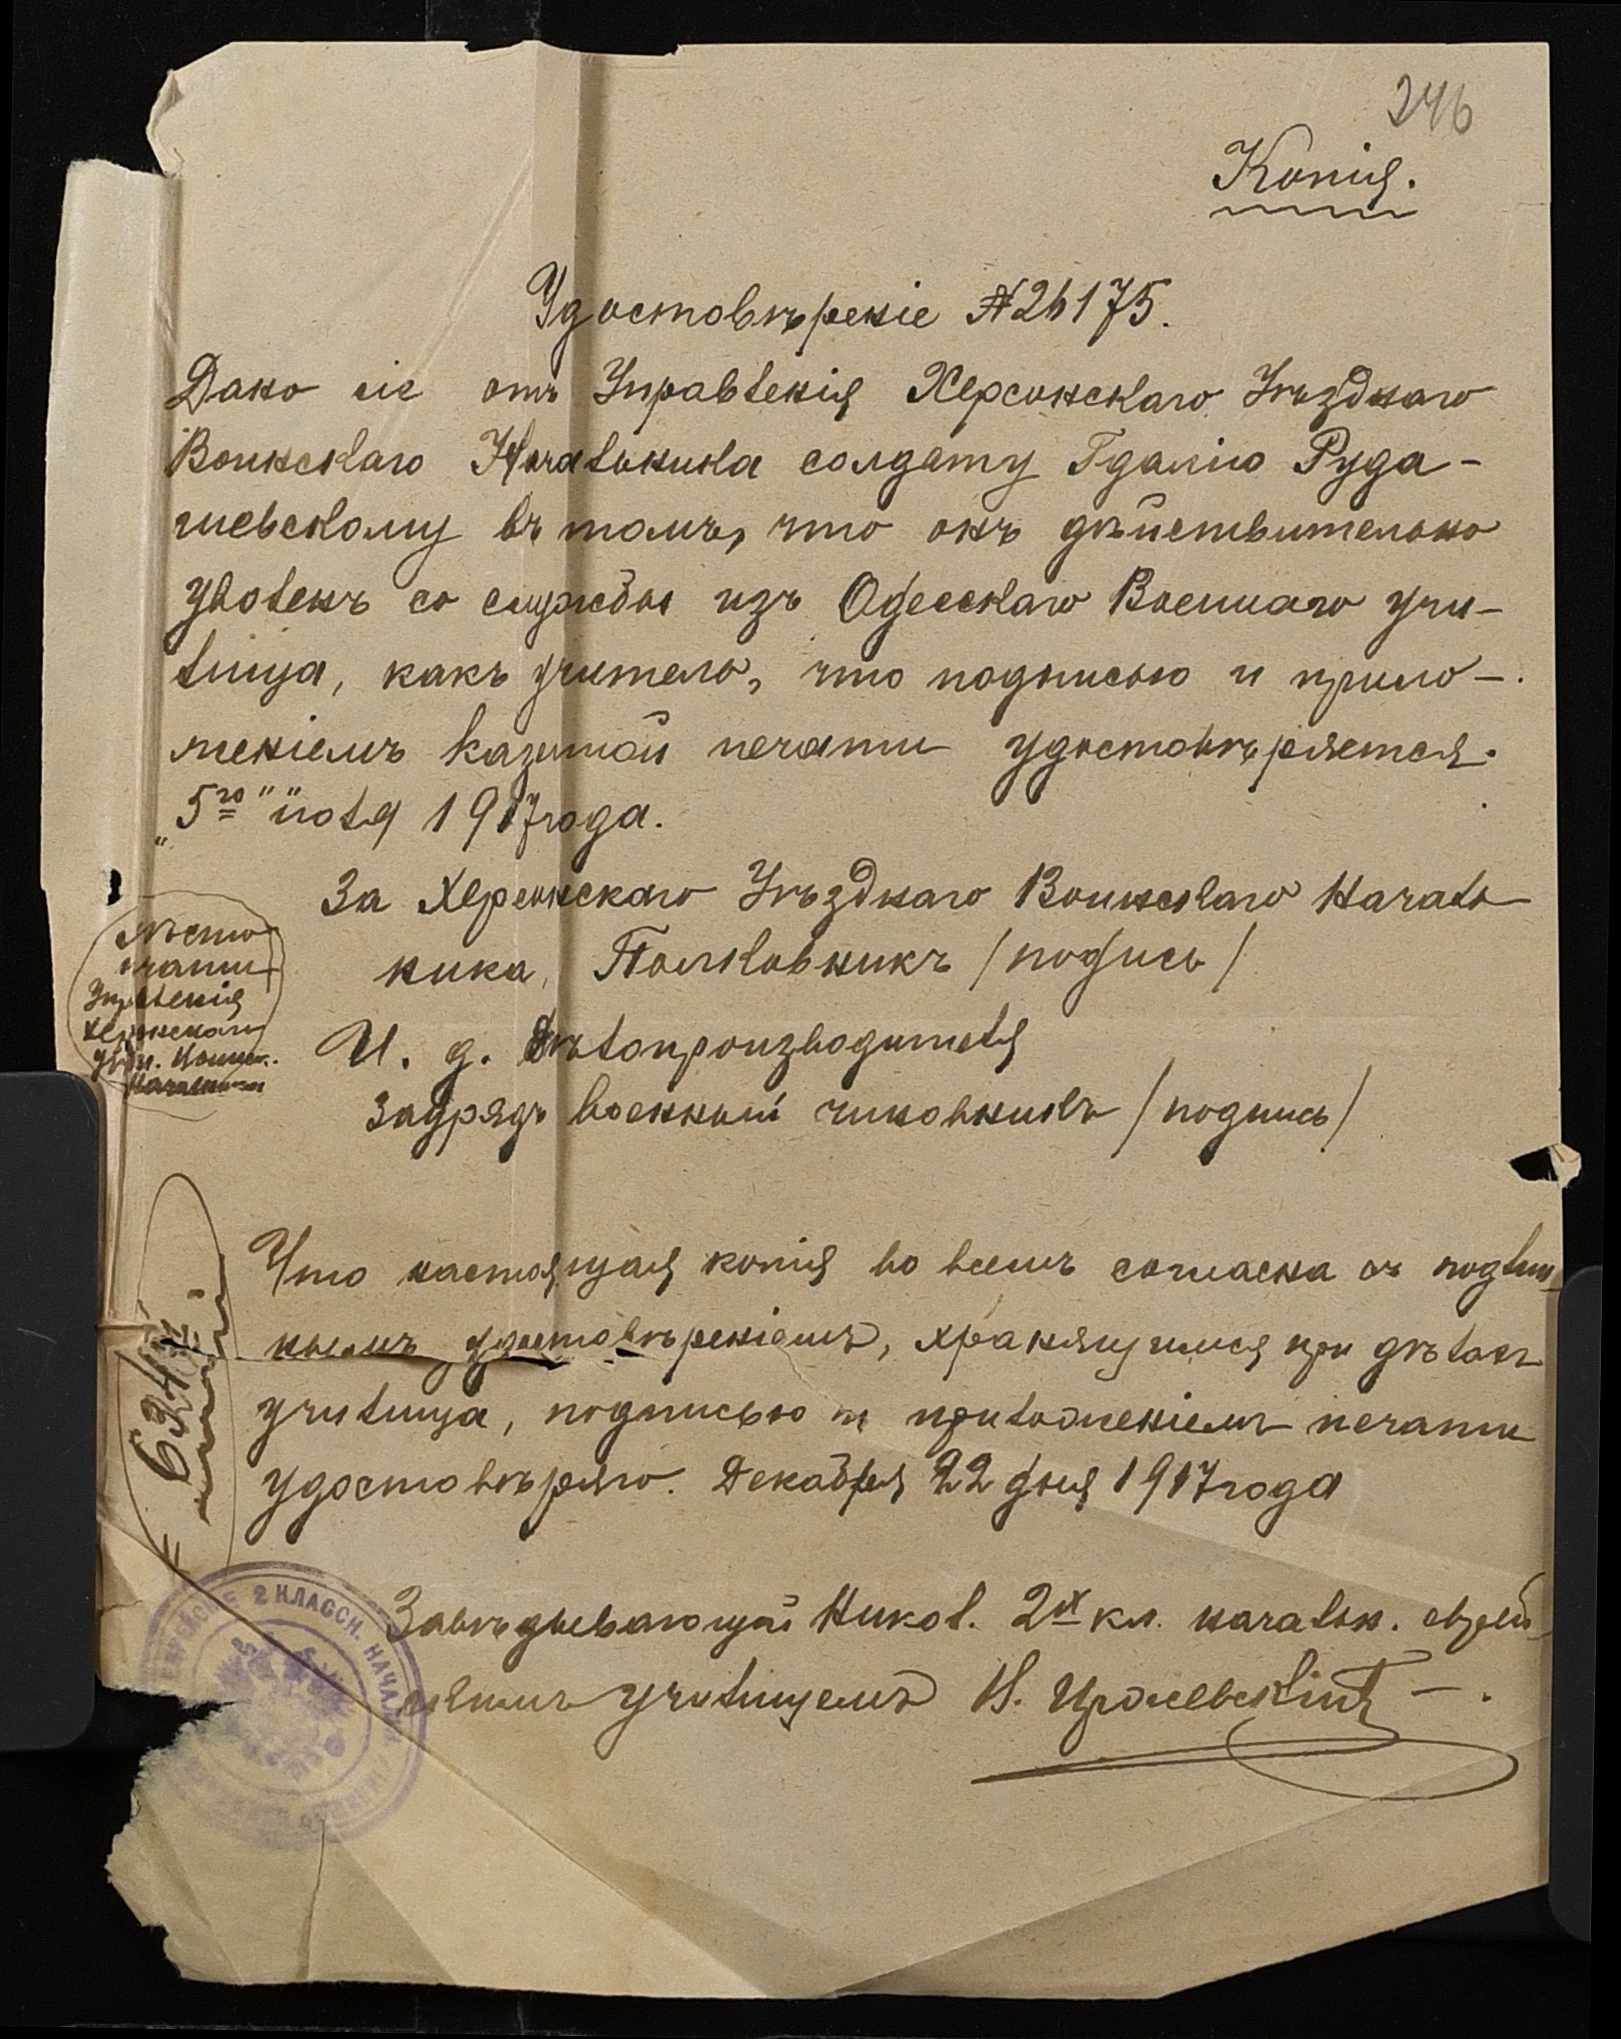 246
Копія.
Удостовѣреніе №26175.
Дано сіе отъ Управленія Херсонскаго Уѣзднаго
Воинскаго Начальника солдату Гдалію Руда-
шевскому въ томъ, что онъ дѣйствительно
уволенъ со службы изъ Одесскаго Военнаго учи-
лища, какъ учитель, что подписью и прило-
женіемъ казенной печати удостовѣряется.
„5го" іюля 1917 года.
За Херсонскаго Уѣзднаго Воинскаго Началь
ника, Полковникъ /подпись/
И. д. Дѣлопроизводителя
Заурядъ военный чиновникъ /подпись/
Мѣсто
печати
Управленія
Херсонскаго
Уѣздн. Воинск.
Начальника
Что настоящая копія во всемъ согласна съ подлин
нымъ удостовѣреніемъ, хранящимся при дѣлахъ
училища, подписью и приложеніемъ печати
удостовѣряю. Декабря 22 дня 1917 года
Завѣдывающій Никол. 2х кл. начальн. еврей
скимъ училищемъ
ЕВРЕЙСКОЕ 2 КЛАССН. НАЧАЛЬН.